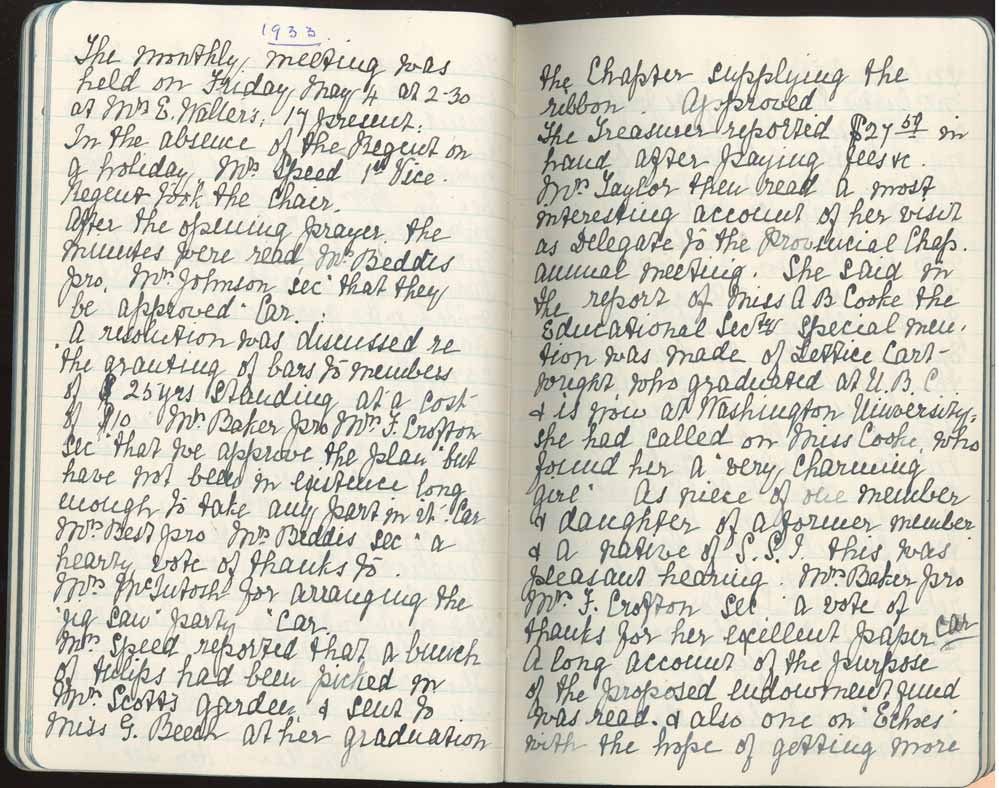 1933.
The monthly meeting was
held on Friday May 4 at 2-30
at Mrs E. Walters; 17 present.
In the absence of the Regent on
a holiday, Mrs Speed 1st Vice.
Regent took the Chair.
After the opening prayer the
minutes were read, Mrs Beddis
pro. Mrs Johnson sec "that they
be approved" Car.
A resolution was discussed re
the granting of bars to members
of 25 yrs standing at a cost
of $10 Mrs Baker pro Mrs F. Crofton
sec "that we approve the plan" but
have not been in existence long
enough to take any part in it" Car
Mrs Best pro Mrs Beddis sec "a
hearty vote of thanks to
Mrs McIntosh for arranging the
jig saw party" Car.
Mrs Speed reported that a bunch
of tulips had been picked in
Mrs Scott's garden, & sent to
Miss G. Beech at her graduation
the Chapter supplying the
ribbon. Approved
The Treasurer reported $27 50 in
hand after paying fees &c.
Mrs Taylor then read a most
interesting account of her visit
as Delegate to the Provincial Chap.
annual meeting. She said in
the report of Miss A B Cooke the
Educational Secty special men-
tion was made of Lettice Cart-
wright who graduated at U.B.C
& is now at Washington University,
she had called on Miss Cooke, who
found her a "very charming
girl" As niece of one member
& daughter of a former member
& a native of S.S.I. this was
pleasant hearing. Mrs Baker pro
Mrs F. Crofton sec "a vote of
thanks for her excellent paper car
A long account of the purpose
of the proposed endowment fund
was read. & also one on "Echoes"
with the hope of getting more